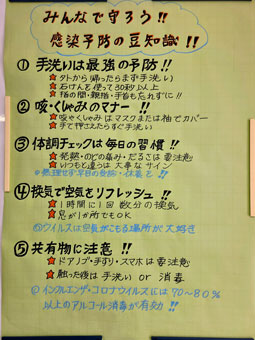 みんなで守ろう!!
感染予防の豆知識!!
①手洗いは最強の予防!!
★外から帰ったらまず手洗い
★石けんを使って30秒以上
★指の間・親指・手首も忘れずに!!
②咳・くしゃみのマナー!!
★咳やくしゃみはマスクまたは袖でカバー
★手で押さえたらすぐ手洗い
③体調チェックは毎日の習慣!!
★発熱・のどの痛み・だるさは要注意
★いつもと違うは大事なサイン
※無理せず早目の受診・休養を!!
④換気で空気をリフレッシュ!!
★1時間に1回数分の換気
★窓が1か所でもOK
◎ウイルスは空気がこもる場所が大好き
⑤共有物に注意!!
★ドアノブ・手すり・スマホは要注意
★触った後は手洗いor消毒
◎インフルエンザ・コロナウイルスには70~80%
以上のアルコール消毒が有効!!